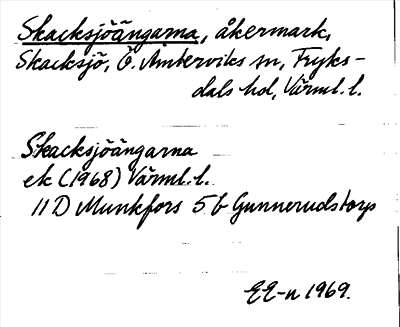 Skacksjöängarna, åkermark,
Skacksjö, Ö. Ämterviks sn, Fryks-
dals hd, Värml. l.
Skacksjöängarna
ek (1968) Värml. l.
11 D Munkfors 5 b Gunnerudstorp
EE-n 1969.